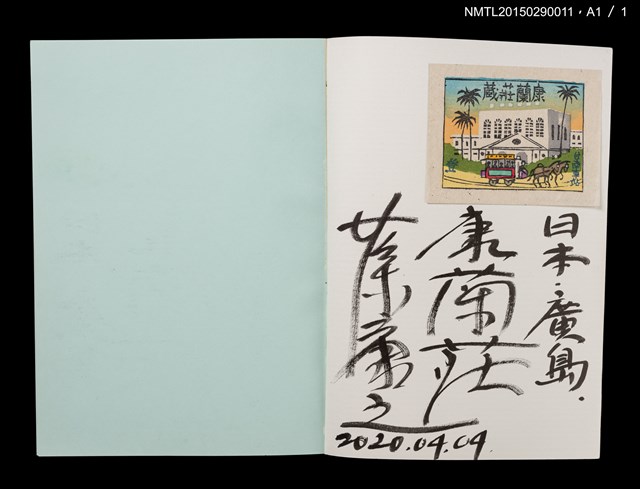 NMTL20150290011，A1 / 1
康蘭莊藏
日本·廣島.
康蘭莊
蔡康之
2020.04.09